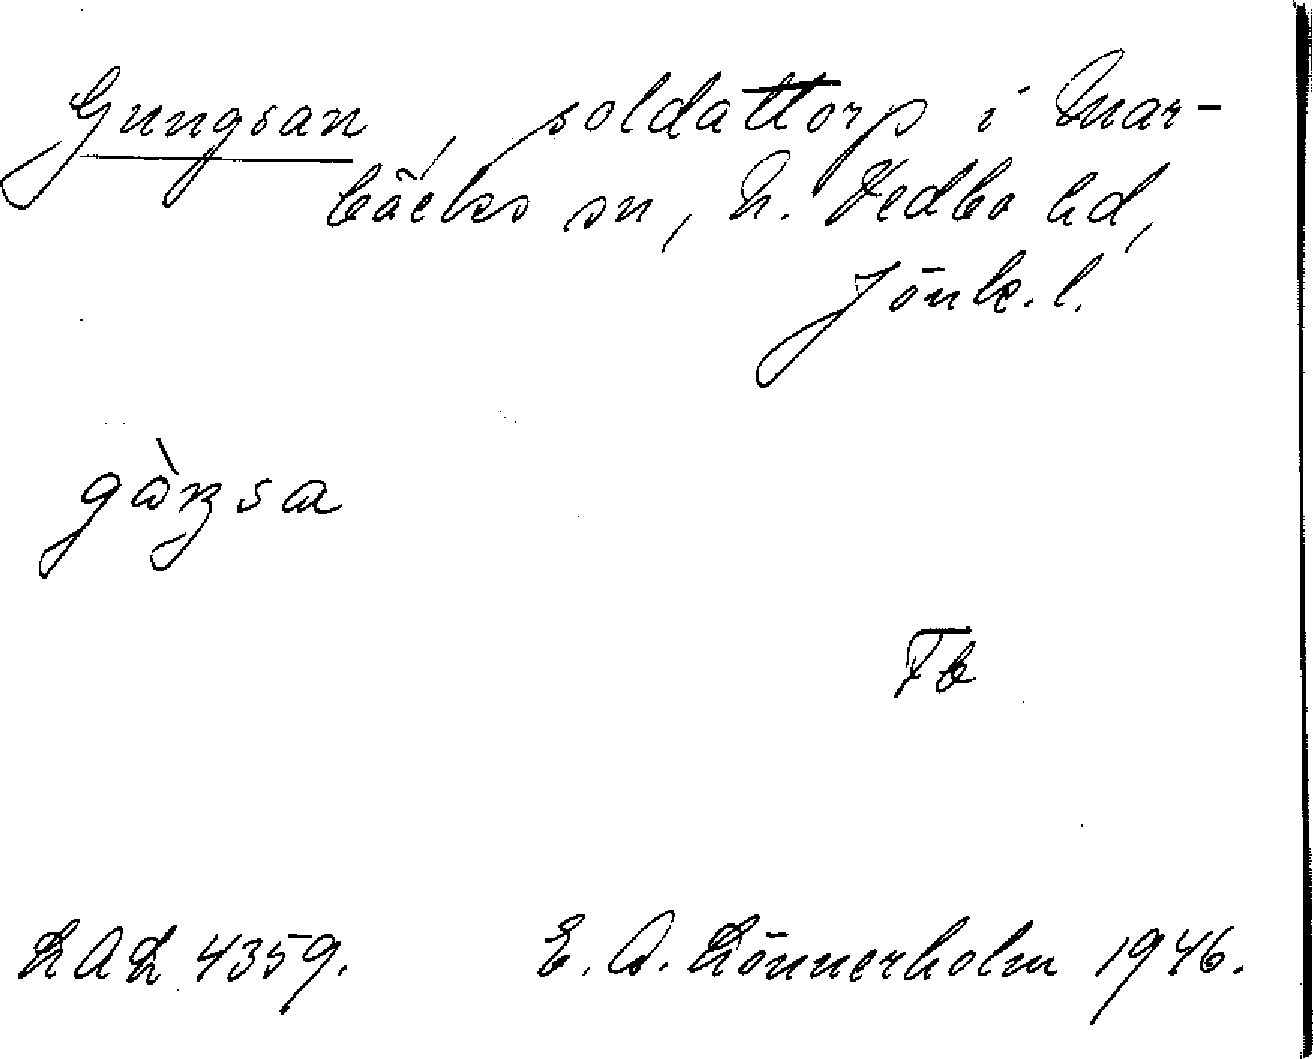 Gungsan, soldattorp i Mar-
bäcks sn, N. Vedbo hd,
Jönk. l.
gàŋsa
Fb
LAL 4359. E. A. Lönnerholm 1946.